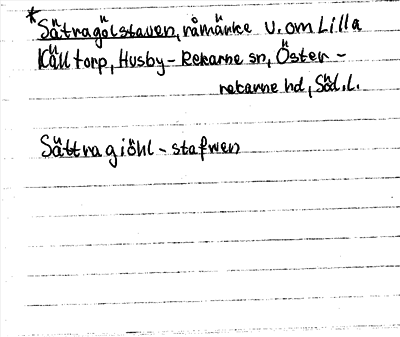 *Sätragölstaven, råmärke V. om Lilla
Källtorp, Husby-Rekarne sn, Öster-
rekarne hd, Söd. L.
Sättragiöhl-stafwen